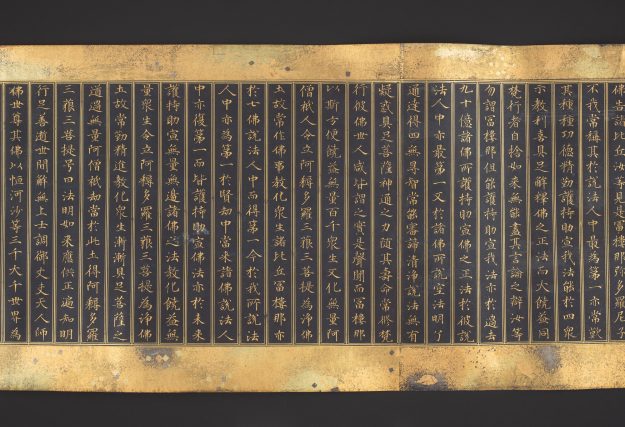 佛告諸比丘汝等見是富樓那彌多羅尼子
不我常稱其於說法人中最為第一亦常歎
其種種功德精勤護持助宣我法能於四眾
示教利喜具足解釋佛之正法而大饒益同
梵行者自捨如來無能盡其言論之辯汝等
勿謂富樓那但能護持助宣我法亦於過去
九十億諸佛所護持助宣佛之正法於彼說
法人中亦最第一又於諸佛所說空法明了
通達得四無㝵智常能審諦清淨說法無有
疑惑具足菩薩神通之力隨其壽命常修梵
行彼佛世人咸皆謂之實是聲聞而富樓那
以斯方便饒益無量百千眾生又化無量阿
僧祇人令立阿耨多羅三藐三菩提為淨佛
土故常作佛事教化眾生諸比丘富樓那亦
於七佛說法人中而得第一今於我所說法
人中亦為第一於賢劫中當來諸佛說法人
中亦復第一而皆護持助宣佛法亦於未來
護持助宣無量無邊諸佛之法教化饒益無
量眾生令立阿耨多羅三藐三菩提為淨佛
土故常勤精進教化眾生漸漸具足菩薩之
道過無量阿僧祇劫當於此土得阿耨多羅
三藐三菩提号曰法明如來應供正遍知明
行足善逝世間解無上士調御丈夫天人師
佛世尊其佛以恒河沙等三千大千世界為